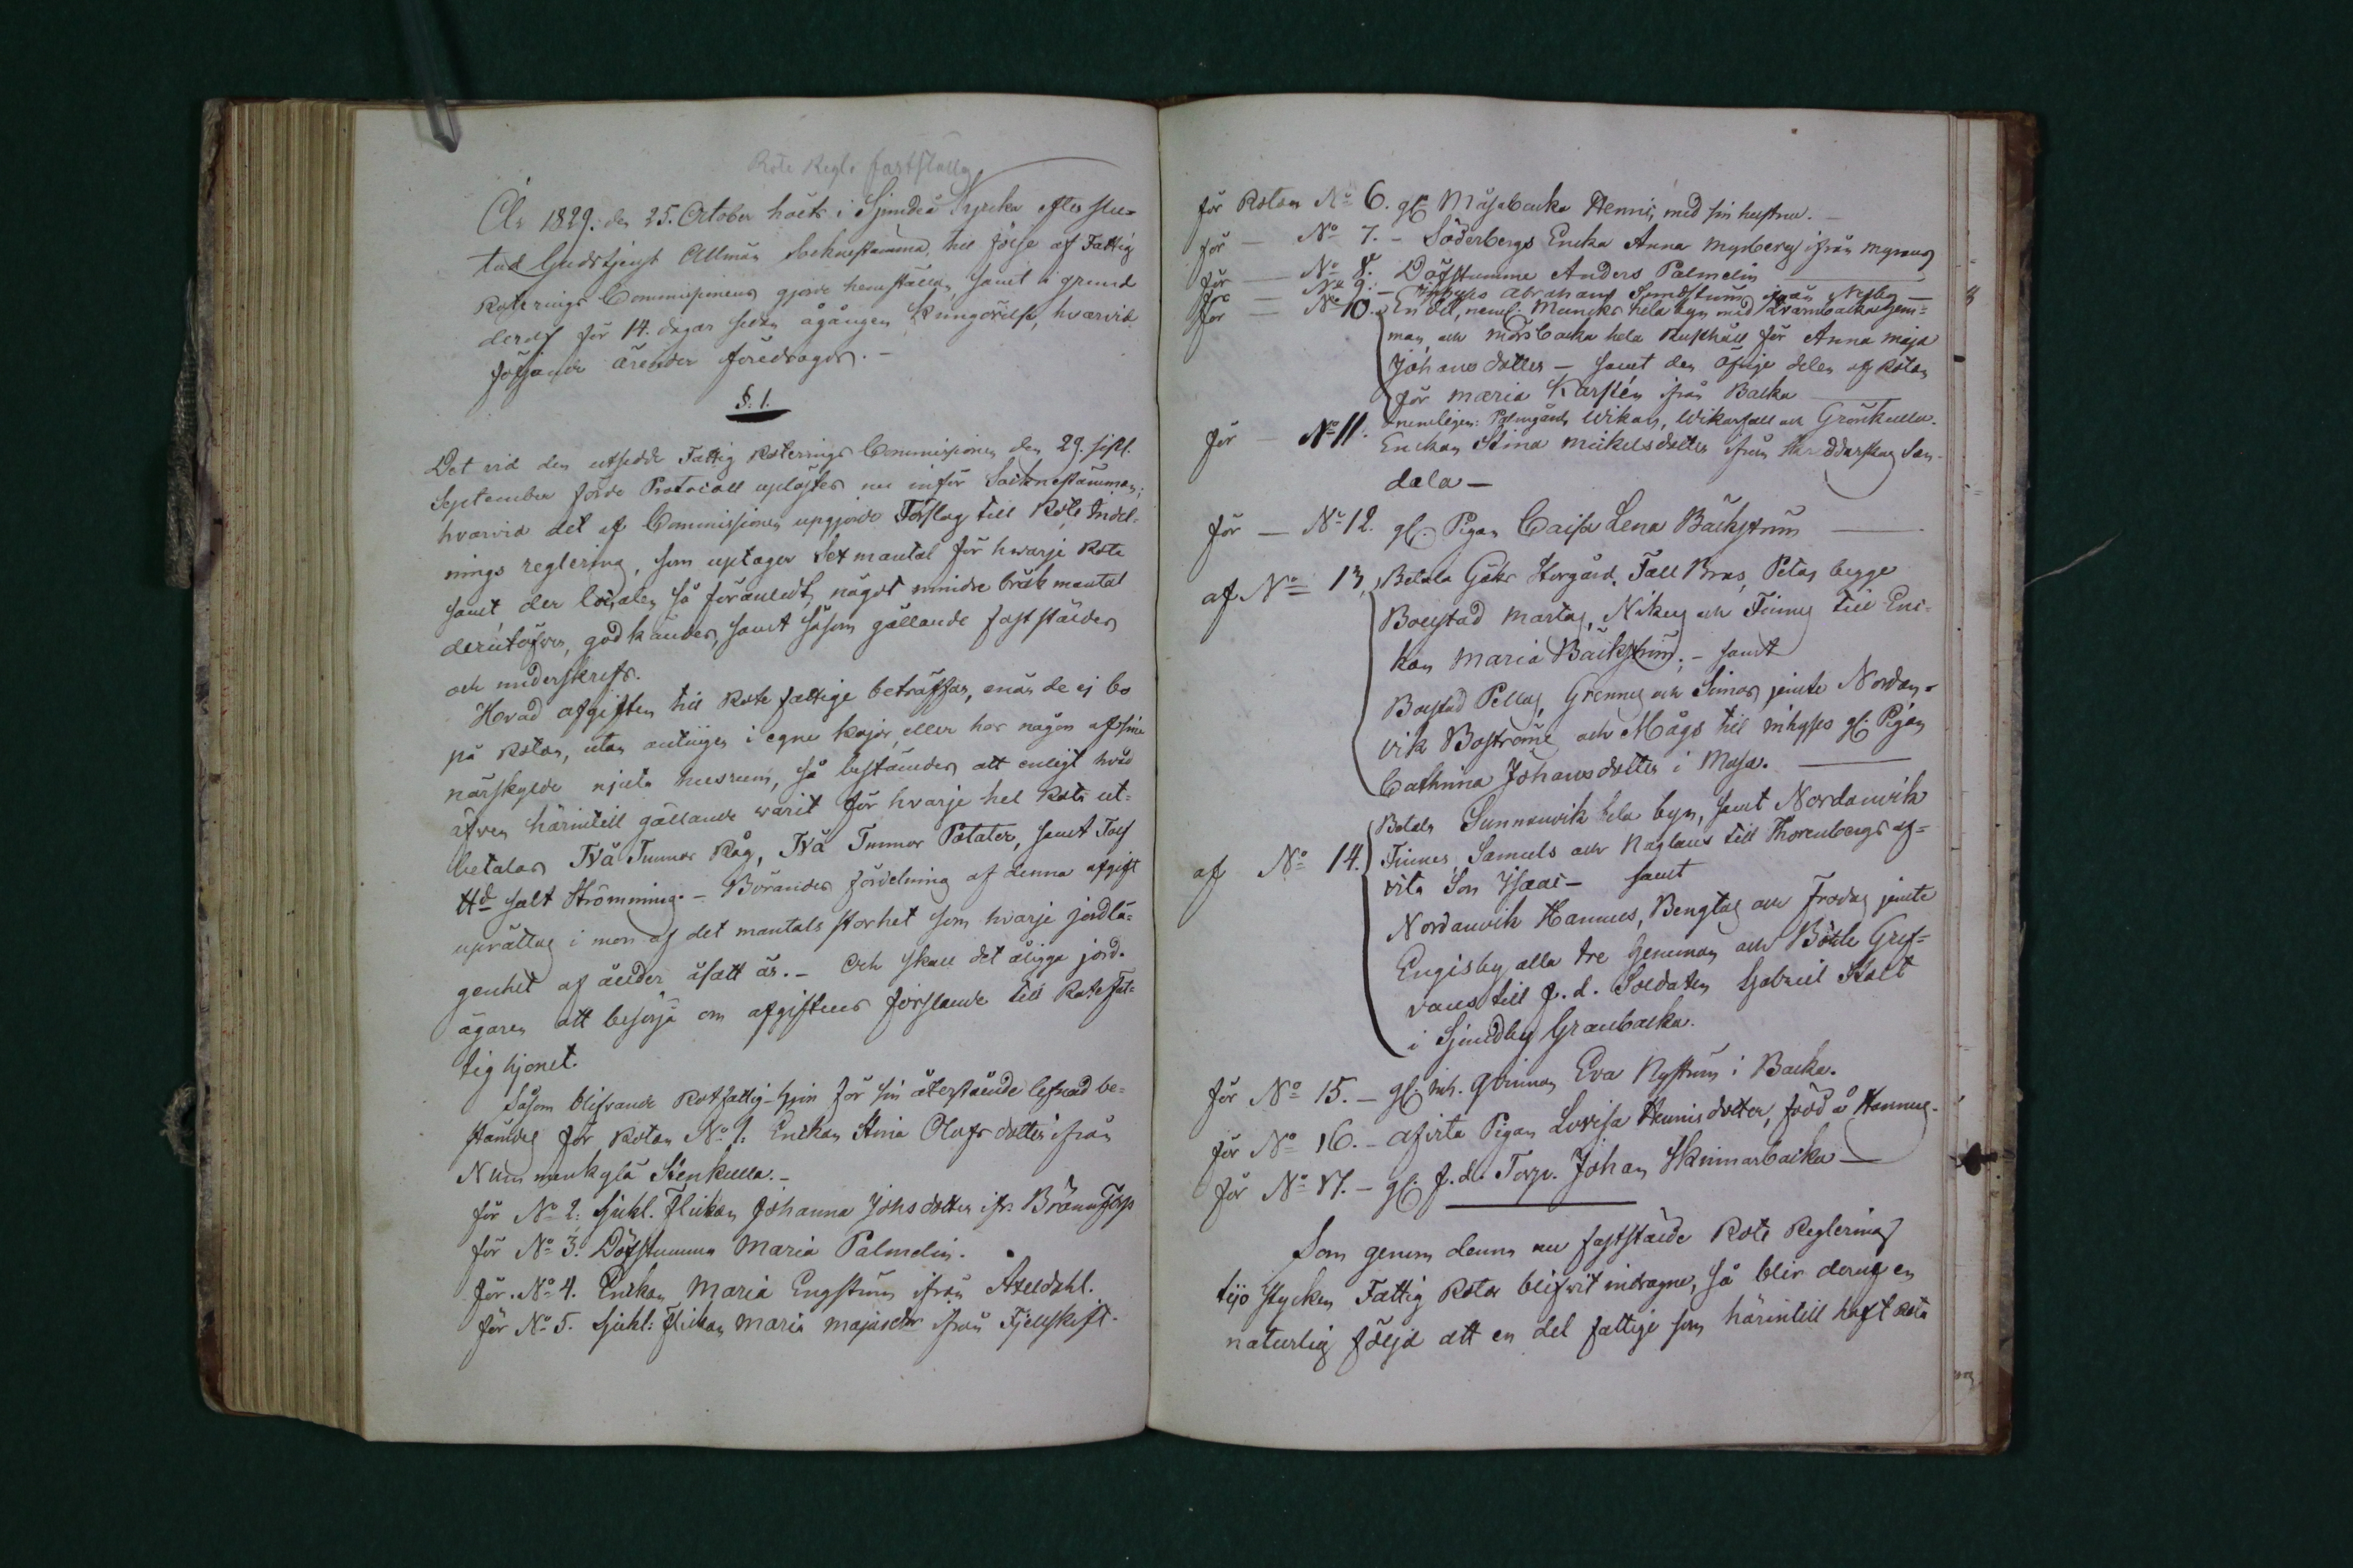 Rote Regl. fastställes
År 1829. den 25. October hölts i Sjundeå Kyrka efter slu-
tad Gudstjenst Allmän Sockne stämma, till följe af Fattig
Roterings Commissionens gjorde hemställan, samt i grund
deraf för 14. dagar sedan ågången Kungörelse, hvarvid
följande ärender föredrogos. -
§. 1.
Det vid den utsedde Fattig Roterings Commissionen den 29. sistl.
September förde Protocoll uplästes nu inför Sockne stämman;
hvarvid det af Commissionen upgjorde Förslag till Rote Indel-
nings reglering, som uptager Sex mantal för hwarje Rote
samt der localen så föranledt, något mindre bråk mantal
derutöfver, godkändes, samt såsom gällande fastställdes
och underskrefs.
Hvad afgiften till Rote fattige beträffar, enär de ej bo
på Rotan, utan antingen i egne kojor eller hos någon af sine
närskylde njuta husrum, så bestämdes att enligt hvad
äfven härintill gällande warit för hvarje hel Rota ut-
betalas Två Tunnor Råg, Två Tunnor Potater, samt Tolf
ttd salt Strömming. - Börandes fördelning af denna afgift
uprättas i mon af det mantals storhet som hvarje jordlä-
genhet af ålder åsatt är. - Och skall det åligga jord-
ägaren att besörja om afgiftens förslande till Rote Fat-
tig hjonet.
Såsom blifvande Rotfattig-hjon för sin återstående lefnad be-
stämdes för Rotan No 1: Enckan Stina Olofs dotter ifrån
Nummenkylä Stenkulla. -
för No 2: Sjukl. Flickan Johanna Johs dotter ifr. Bränn Torp
för No 3. Döfstumma Maria Palmelin.
för No 4. Enckan Maria Engström ifrån Axeldahl.
för No 5. Sjukl: Flickan Maria Majasdtr ifrån Fjellskift.
för Rotan No 6. gl. Måsabacka Henric, med sin hustru. -
för - No 7. - Söderbergs Encka Anna Myrberg ifrån Myrans
för - No 8. Döfstumme Anders Palmelin
för - No 9. - Inhyses Abraham Sundström ifrån Nesby -
för - No 10. - En del, neml. Muncks hela byn med Qvarnbacka hem-
man, och Morsbacka hela Rusthåll för Anna Maja
Johans dotter - samt den öfrige delen af Rotan
för Maria Karsten ifrån Backa
nemligen: Palmgård, Wikars, Wikarfall och Grönkulla.
för - No 11. Enckan Stina Mickelsdotter ifrån Skräddarskog San-
dala -
för - No 12. gl. Pigan Caisa Lena Bäckström
af No 13. Betala Göks Storgård, Fall Bros, Petas begge
Bolstad Martas, Nikus och Finnas till Enc-
kan Maria Bäckström; - samt
Bolstad Pellas, Grennas och Simos jemte Nordan-
vik Boströms och Mågs till inhyses gl. Pigan
Cathrina Johansdotter i Masa.
af No 14. Betala Sunnanvik hela byn, samt Nordanvik
Finnes Samuels och Naglans till Thorenbergs af-
vita Son Isaac - samt
Nordanvik Hannus, Bengtas och Frodas jemte
Engisby alla tre hemman och Böhle Gref-
vans till f. d. Soldaten Gabriel Stolt
i Sjundby Granbacka.
för No 15. - gl. inh. Qvinnan Eva Nyström i Backa.
för No 16. - afvita Pigan Lovisa Hennis dotter, född å Hannus-
för No 17. - gl. f. d. Torp. Johan Skinnarbacka -
Som genom denna nu faststälde Rote Reglering
tijo stycken Fattig Rotar blifvit indragne, så blir deraf en
naturlig följd att en del fattige som härintill haft Rota